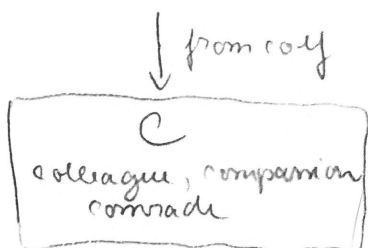 from colf
C
colleague, companion
comrade